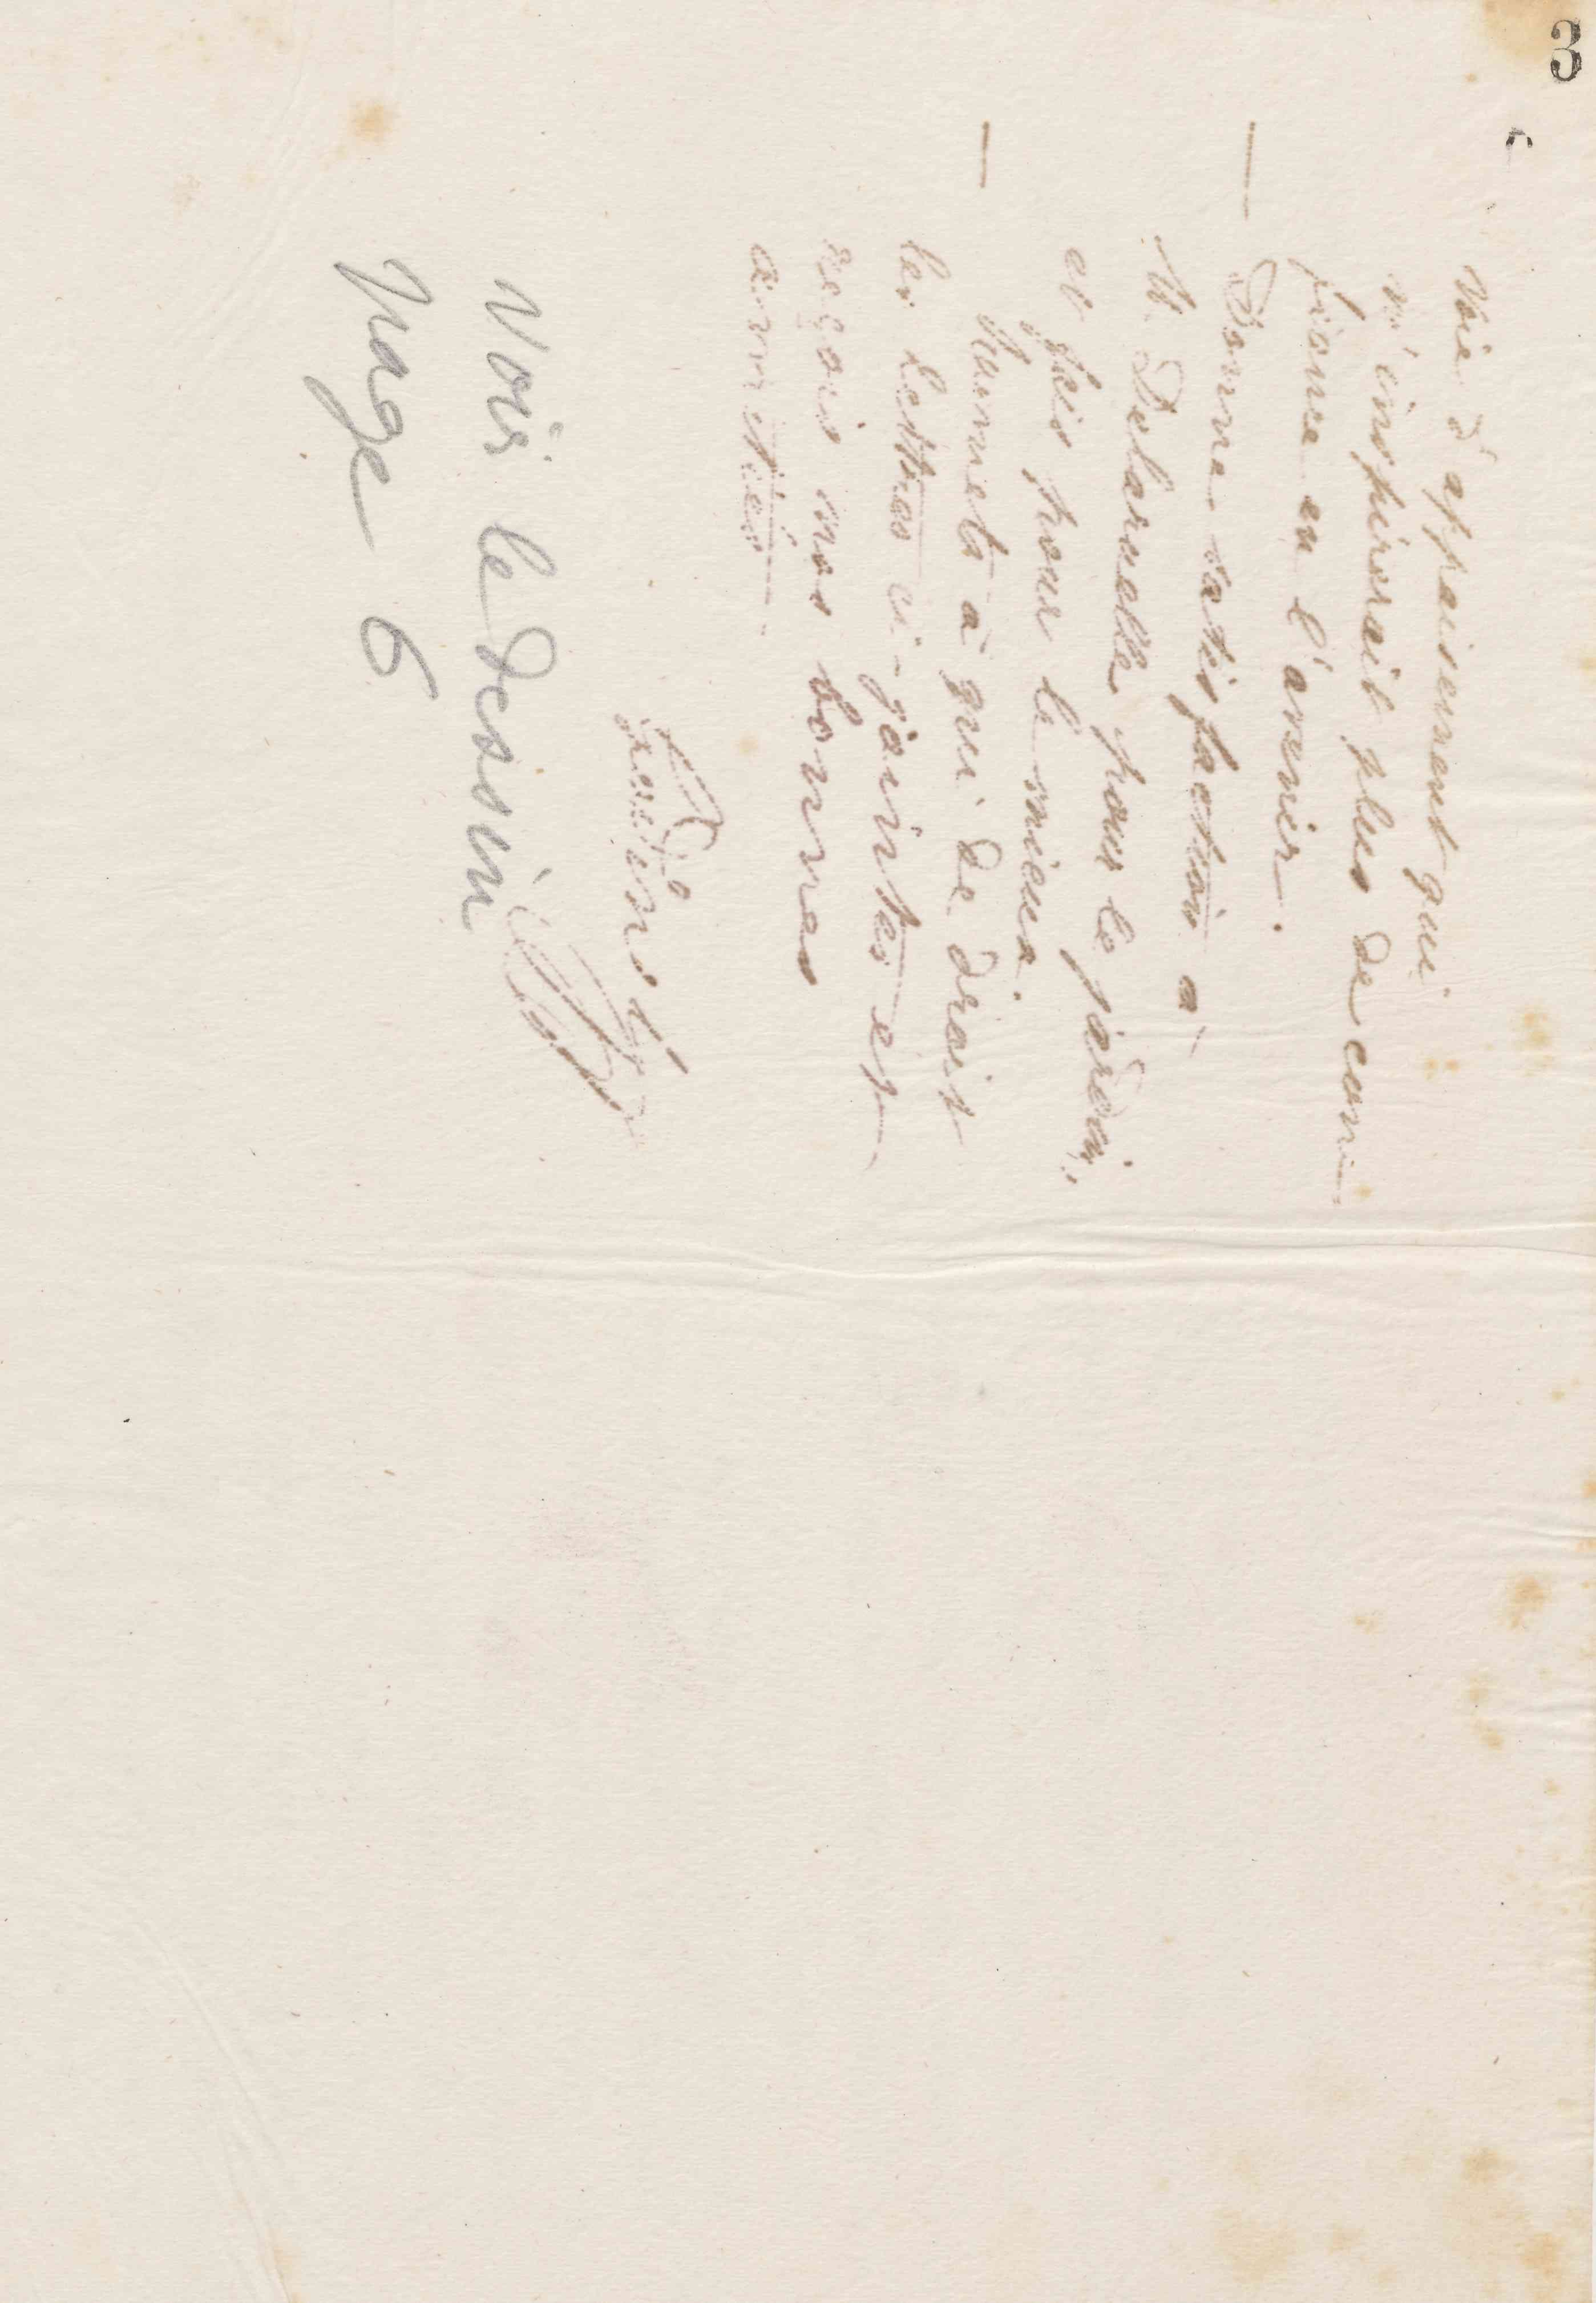 3
voie d'appaisement qui
m'inspirerait plus de con-
fiance en l'avenir.
— Donne satisfaction à
M. Delaruelle pour le jardin,
et fais pour le mieux.
— Remets à qui de droit
les lettres ci-jointes et
reçois mes bonnes
amitiés.
Godin
Voir le dessin
page 6